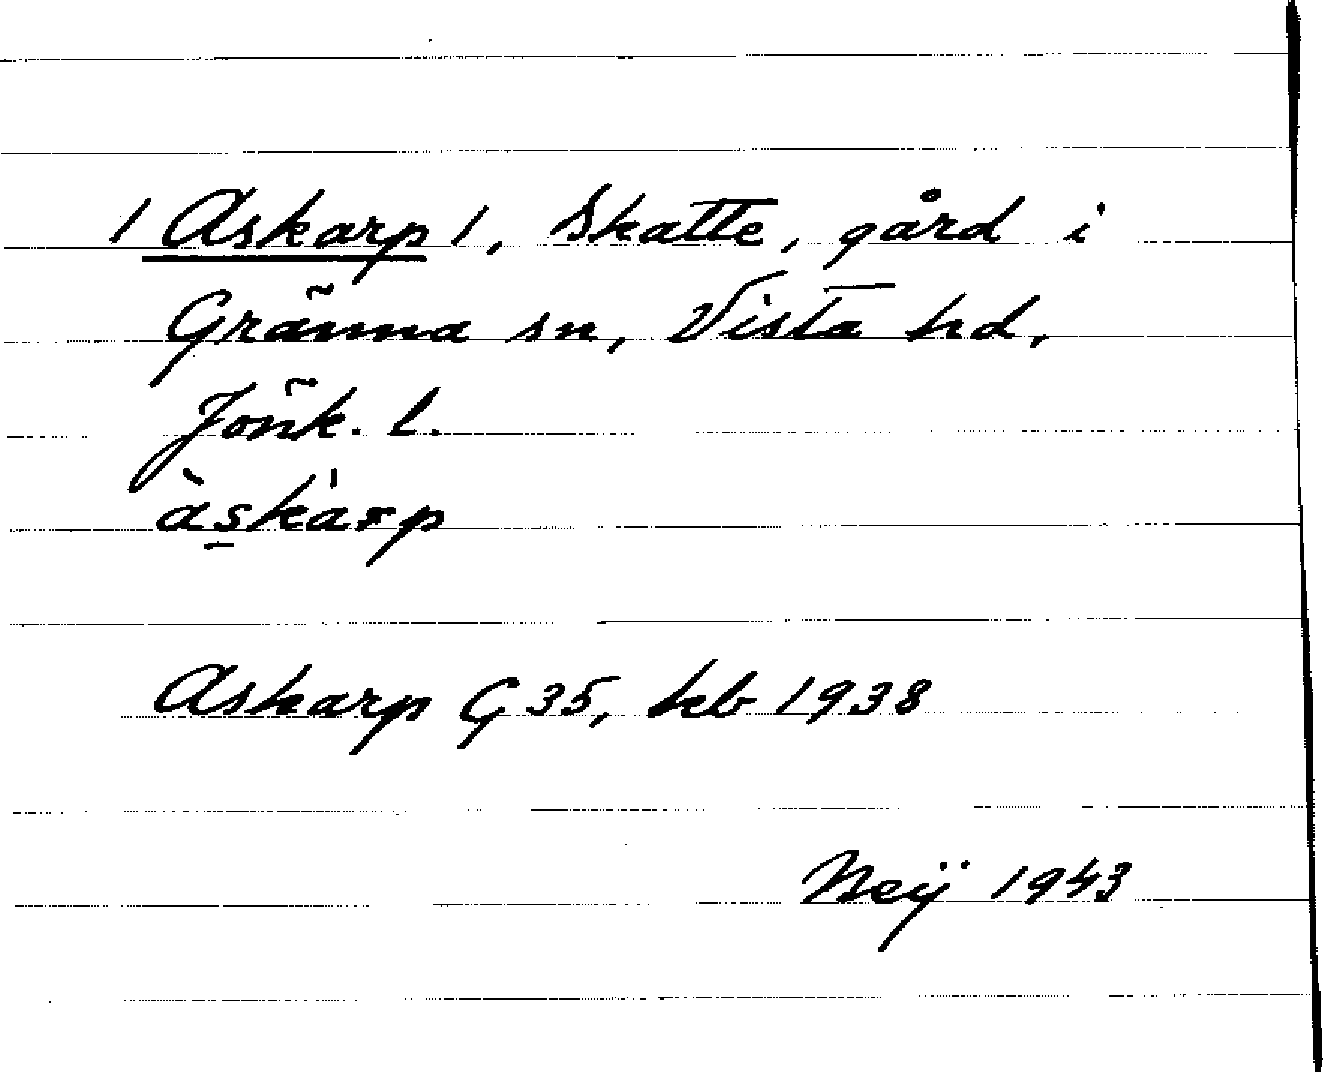 / Askarp /, Skatte, gård i
Gränna sn, Vista hd,
Jönk. l.
às̲kàrp
Askarp G 35, kb 1938
Neij 1943